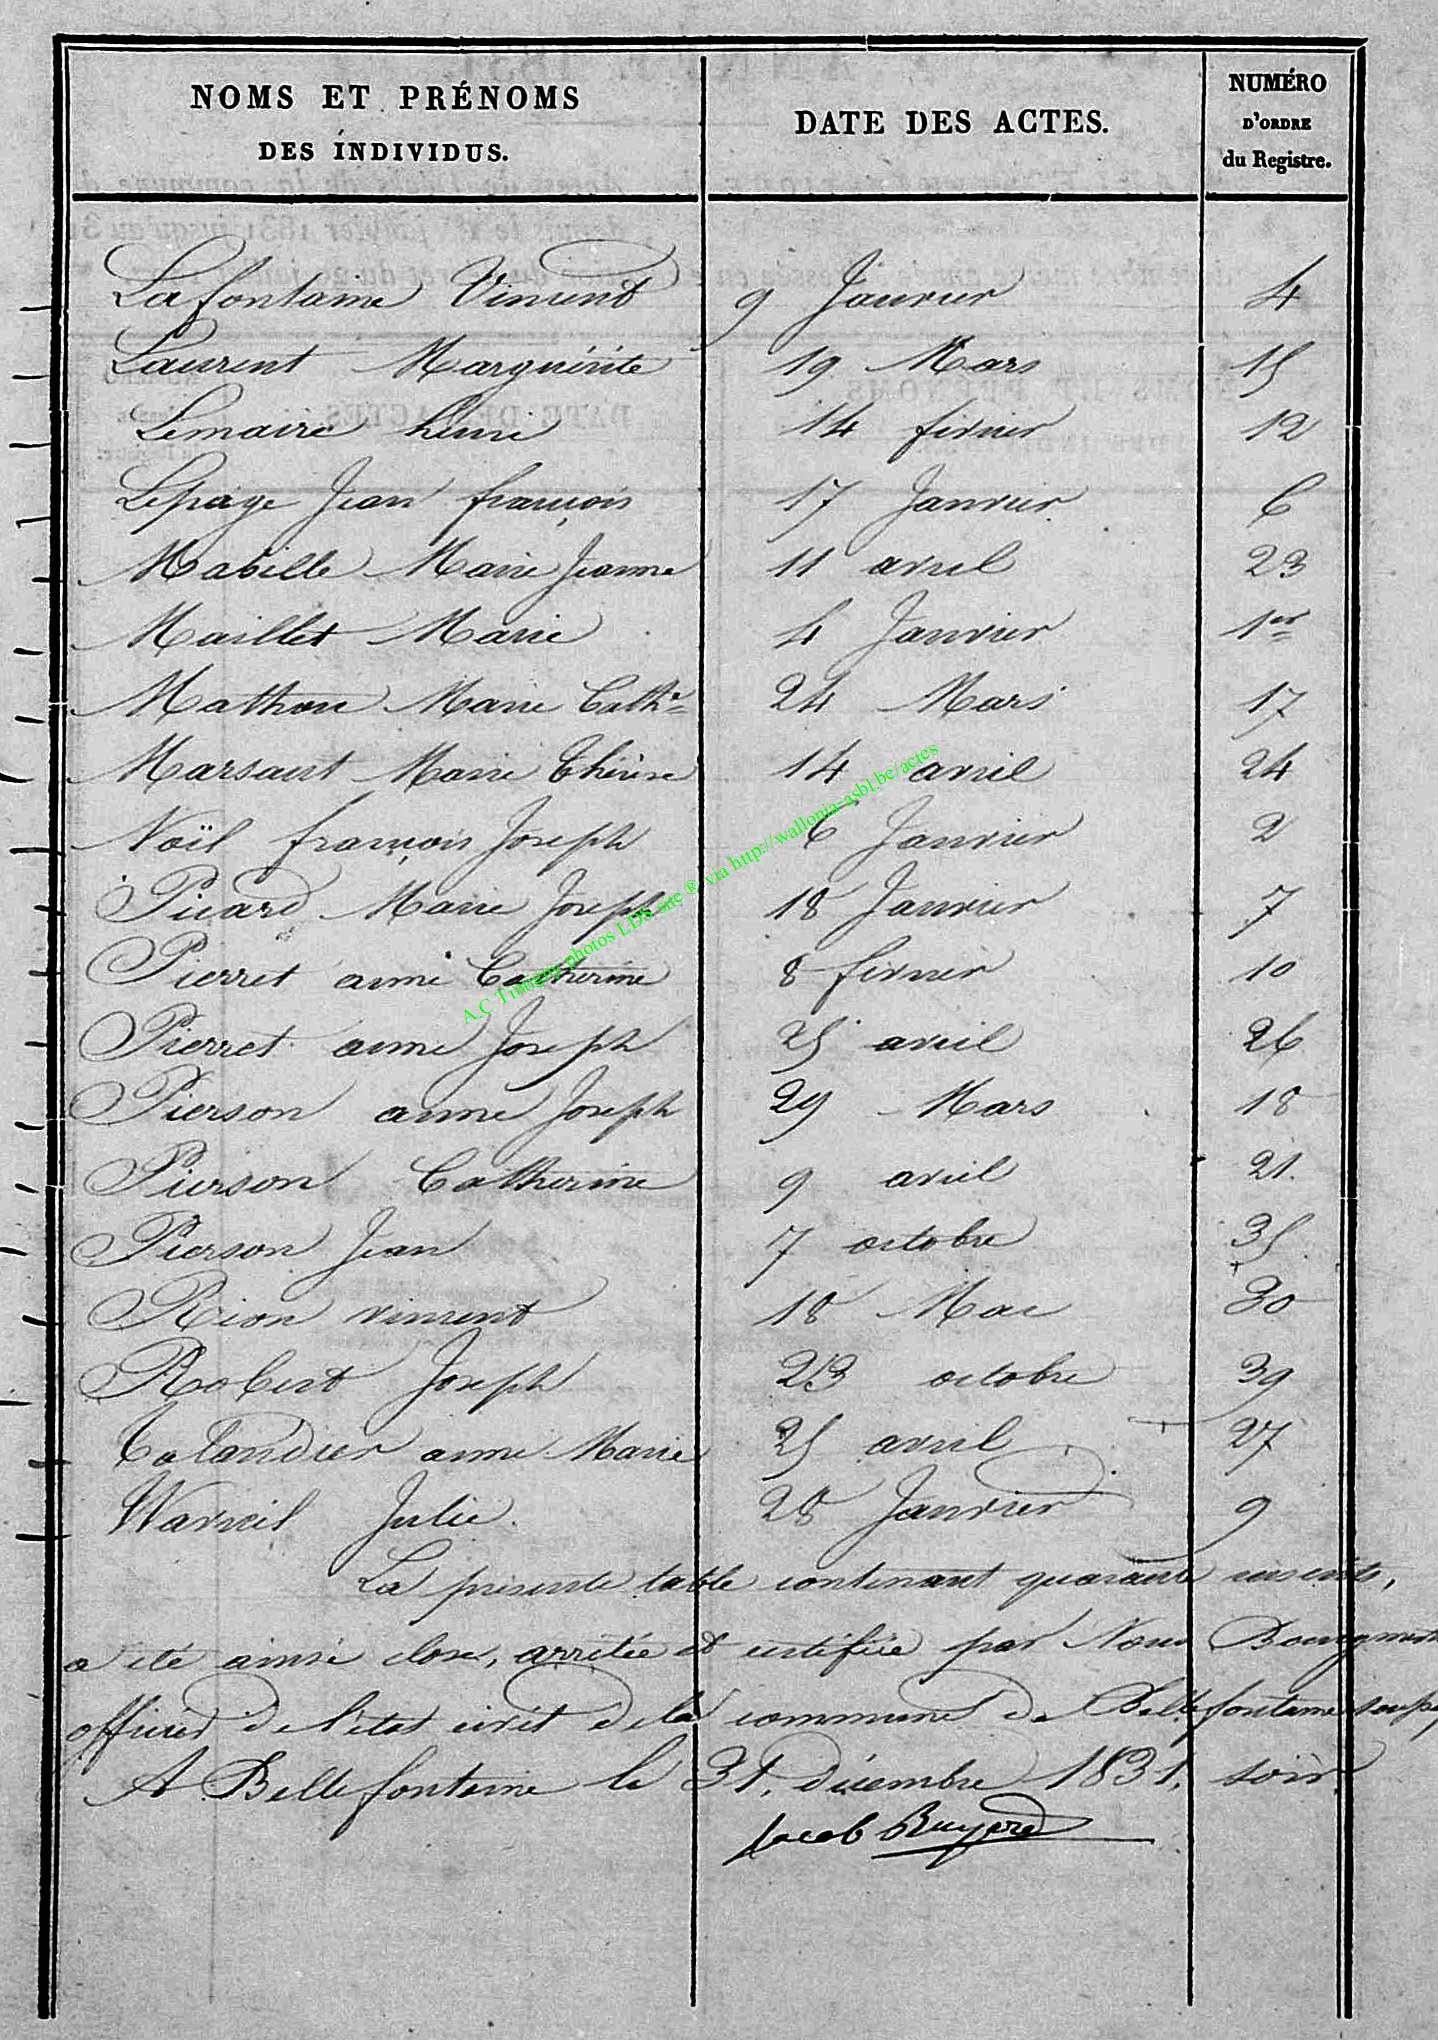 NOMS ET PRÉNOMS DES INDIVIDUS. DATE DES ACTES. NUMÉRO D'ORDRE du Registre.
Lafontaine Vincent 9 Janvier 4
Laurent Marguérite 19 Mars 15
Lemaire henri 14 février 12
Lepage Jean françois 17 Janvier 6
Mabille Marie Jeanne 11 avril 23
Maillet Marie 4 Janvier 1er
Mathon Marie Cathe 24 Mars 17
Marsaut Marie Thérèse 14 avril 24
Noël françois Joseph 6 Janvier 2
Picard Marie Joseph 18 Janvier 7
Pierret anne Catherine 8 février 10
Pierret anne Joseph 25 avril 26
Pierson anne Joseph 29 Mars 18
Pierson Catherine 9 avril 21.
Pierson Jean 7 octobre 35
Rion vincent 18 Mai 30
Robert Joseph 23 octobre 39
Talandier anne Marie 25 avril 27
Julie. 28 Janvier 9
La présente table contenant quarante inscrits,
a été ainsi close, arrêtée et certifiée par Nous
officier de l'état civil de la commune de Bellefontaine
A Bellefontaine le 31. décembre 1831. soir.
Jacob
A.C Tintigny photos LDS site ® via http://wallonia-asbl.be/actes